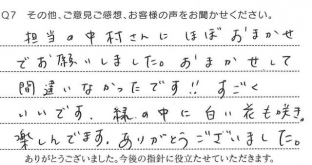 Q7 その他、ご意見ご感想、お客様の声をお聞かせください。
担当の中村さんにほぼおまかせ
でお願いしました。おまかせして
間違いなかったです!! すごく
いいです。緑の中に白い花も咲き
楽しんでます。ありがとうございました。
ありがとうございました。今後の指針に役立たせていただきます。